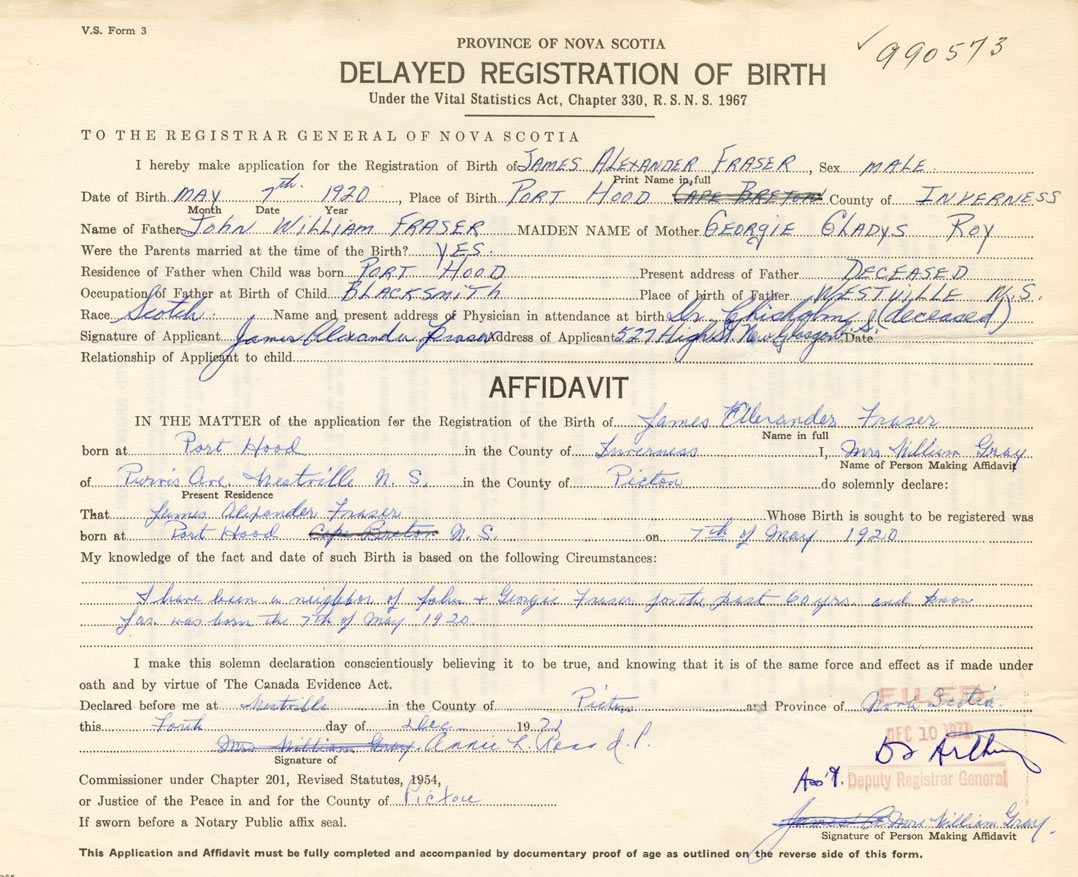 V.S. Form 3
990573
PROVINCE OF NOVA SCOTIA
DELAYED REGISTRATION OF BIRTH
Under the Vital Statistics Act, Chapter 330, R. S. N. S. 1967
TO THE REGISTRAR GENERAL OF NOVA SCOTIA
I hereby make application for the Registration of Birth of JAMES ALEXANDER FRASER, Sex MALE.
Print Name in full
Date of Birth MAY 7th. 1920, Place of Birth PORT HOOD CAPE BRETON County of INVERNESS
Month Date Year
Name of Father JOHN WILLIAM FRASER MAIDEN NAME of Mother GEORGIE GLADYS ROY
Were the Parents married at the time of the Birth? YES.
Residence of Father when Child was born PORT HOOD Present address of Father DECEASED
Occupation of Father at Birth of Child BLACKSMITH Place of birth of Father WESTVILLE N.S.
Race Scotch. Name and present address of Physician in attendance at birth Dr. Chisholm (deceased)
Signature of Applicant James Alexander Fraser Address of Applicant 527 High St. New Glasgow N.S. Date
Relationship of Applicant to child
AFFIDAVIT
IN THE MATTER of the application for the Registration of the Birth of James Ellexander Fraser
Name in full
born at Port Hood in the County of Inverness I, Mrs William Gray
Name of Person Making Affidavit
of Ave. Westville N. S. in the County of Pictou do solemnly declare:
Present Residence
That James Alexander Fraser Whose Birth is sought to be registered was
born at Port Hood Cape Breton N. S. on 7th of May 1920
My knowledge of the fact and date of such Birth is based on the following Circumstances:
I have been a neighbor of John + Georgie Fraser for the past 60 yrs. and know
Jas. was born the 7th of May 1920.
I make this solemn declaration conscientiously believing it to be true, and knowing that it is of the same force and effect as if made under
oath and by virtue of The Canada Evidence Act.
Declared before me at Westville in the County of Pictou and Province of Nova Scotia.
FILED
this Forth day of Dec 1971
DEC 10 1971
Mrs William Gray. Annie L. Ross J. P.
Signature of
Ass't. Deputy Registrar General
Commissioner under Chapter 201, Revised Statutes, 1954,
or Justice of the Peace in and for the County of Pictou
If sworn before a Notary Public affix seal.
Mrs William Gray.
Signature of Person Making Affidavit
This Application and Affidavit must be fully completed and accompanied by documentary proof of age as outlined on the reverse side of this form.